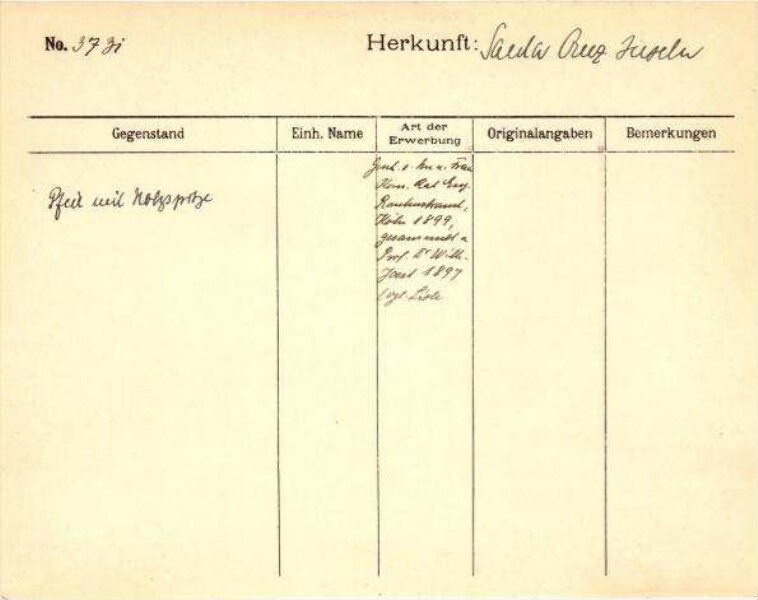 No. 37 3i
Herkunft: Santa Cruz Inseln
Gegenstand
Einh. Name
Art der
Erwerbung
Originalangaben
Bemerkungen
Pfeil mit Holzspitze
Gesch. v. Frau
Kom. Rat Eug.
Rautenstrauch,
Köln 1899,
gesammelt v.
Prof. Dr Wilh.
Joest 1897
(vgl. Liste